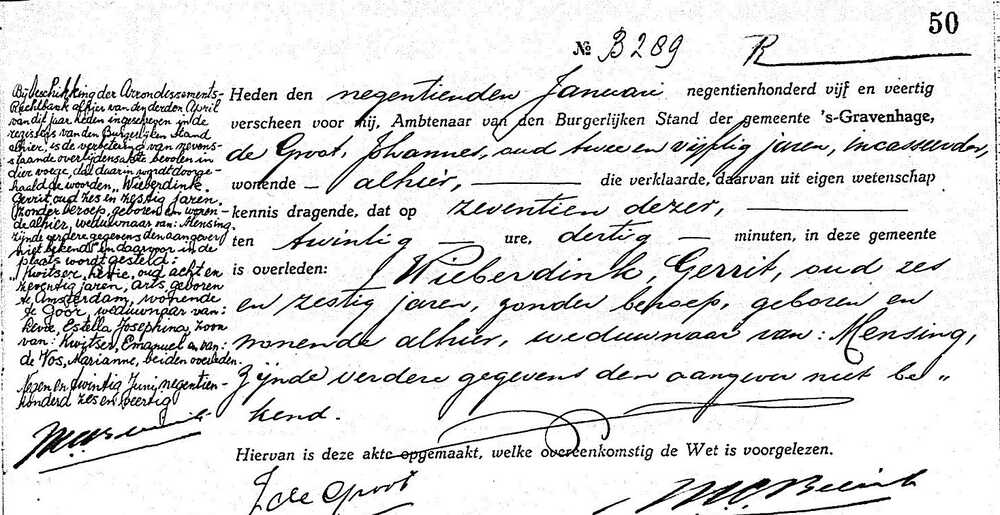 50
№ B289 R
Bij beschikking der Arrondissements-
Rechtbank alhier van den derden April
van dit jaar, heden ingeschreven in de
registers van den Burgerlijken Stand
alhier, is de verbetering van nevens-
staande overlijdensakte bevolen in
dier voege, dat daarin wordt doorge-
haald de woorden, Wieberdink,
Gerrit, oud zes en zestig jaren,
zonder beroep, geboren en wonen-
de alhier, weduwnaar van: Mensing,
zijnde verdere gegevens den aangever
niet bekend" en daarvoor in de
plaats wordt gesteld:
"Kwitser, Levie, oud acht en
zeventig jaren, arts, geboren
te Amsterdam, wonende
te Goor, weduwnaar van:
Estella Josephina, zoon
van: Kwitser, Emanuel en van:
de Vos, Marianne, beiden overleden.
en twintig Juni negentien-
honderd zes en veertig
Heden den negentienden Januari negentienhonderd vijf en veertig
verscheen voor mij, Ambtenaar van den Burgerlijken Stand der gemeente 's-Gravenhage,
de Groot, Johannes, oud twee en vijftig jaren, incasseerder,
wonende - alhier, die verklaarde, daarvan uit eigen wetenschap
kennis dragende, dat op zeventien dezer,
ten twintig - ure, dertig - minuten, in deze gemeente
is overleden: Wieberdink, Gerrit, oud zes
en zestig jaren, zonder beroep, geboren en
wonende alhier, weduwnaar van: Mensing,
zijnde verdere gegevens den aangever niet be-"
kend.
Hiervan is deze akte opgemaakt, welke overeenkomstig de Wet is voorgelezen.
J de Groot